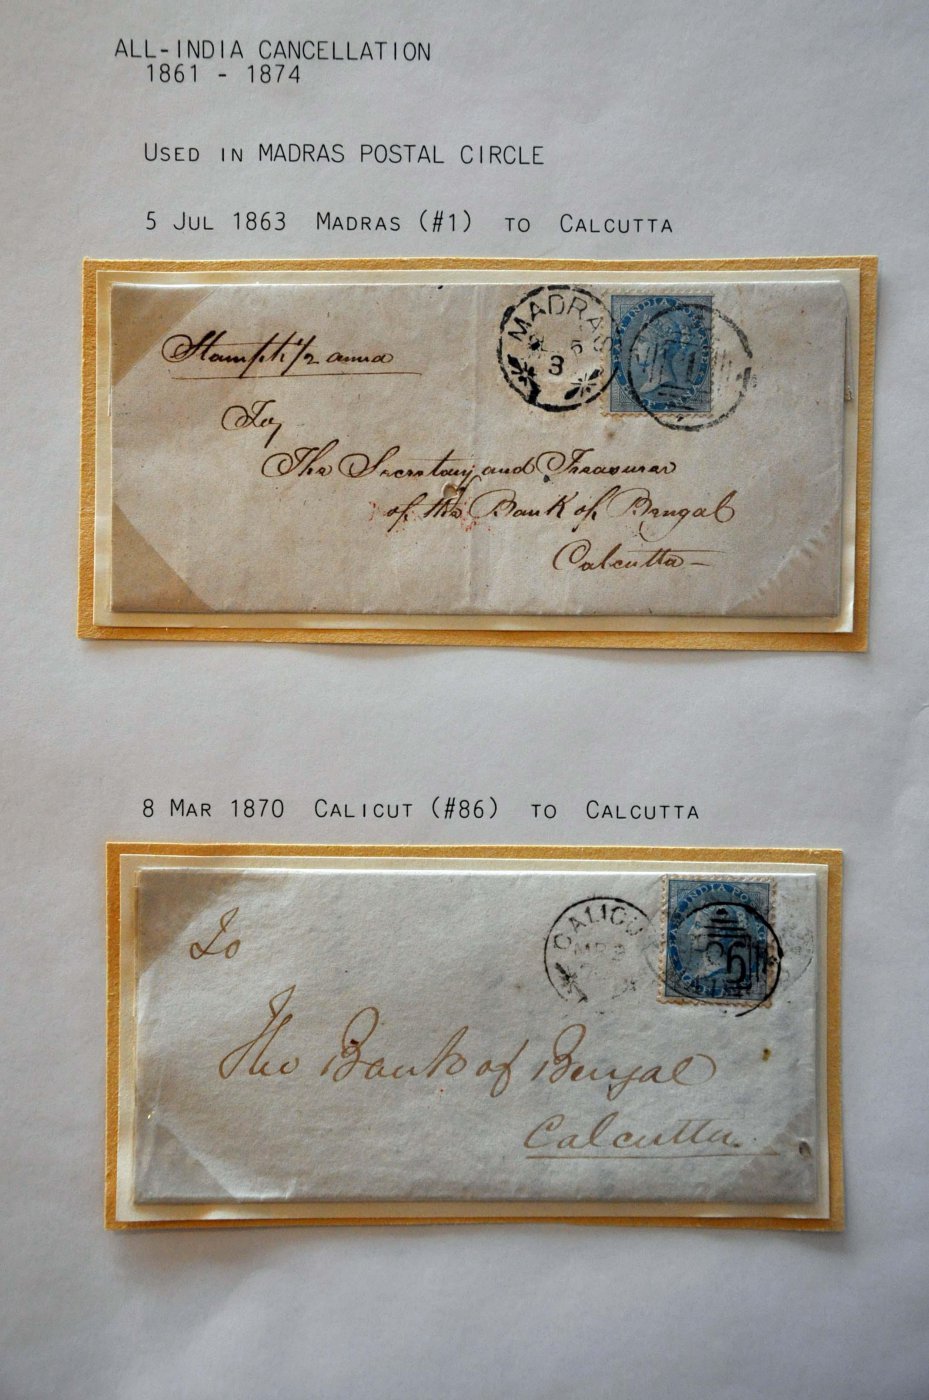 ALL-INDIA CANCELLATION
1861 - 1874
USED IN MADRAS POSTAL CIRCLE
5 JUL 1863 MADRAS (#1) TO CALCUTTA
MADRAS
5
3
1
Stamp 1/2 anna
To,
The Secretary and Treasurer
of the Bank of Bengal
Calcutta
8 MAR 1870 CALICUT (#86) TO CALCUTTA
CALICU
EAST INDIA
86
To
The Bank of Bengal
Calcutta.